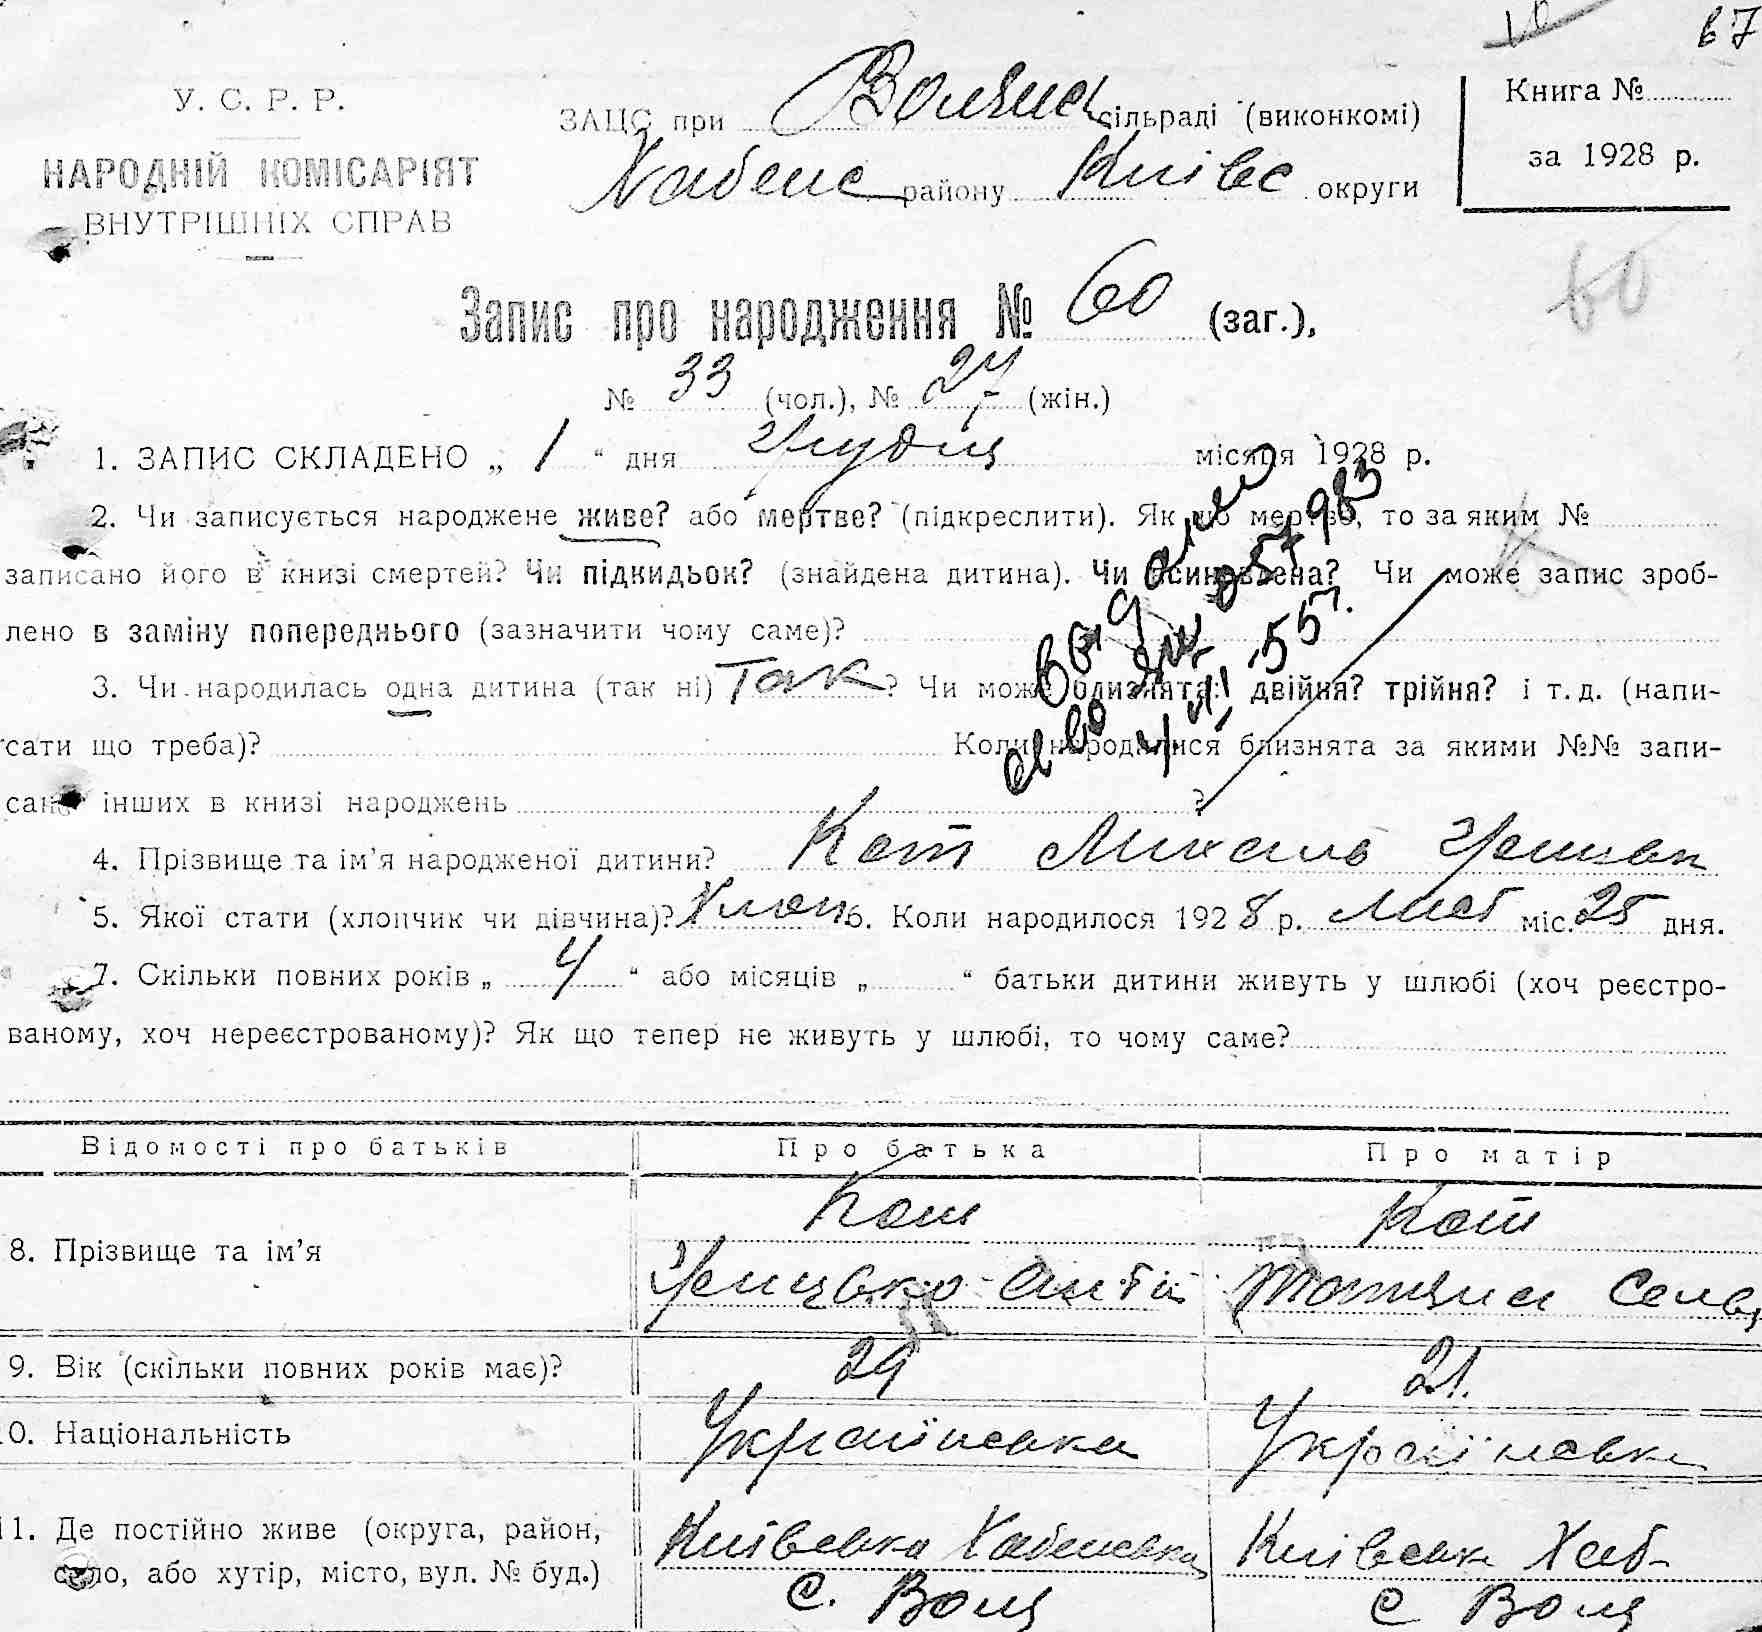 10 67
У. С. Р. Р.
НАРОДНІЙ КОМІСАРІЯТ
ВНУТРІШНІХ СПРАВ
ЗАЦС при Волянс сільраді (виконкомі)
Хабенс району Київс округи
Книга №
за 1928 р.
60
Запис про народження № 60 (заг.),
№ 33 (чол.), № 27 (жін.)
1. ЗАПИС СКЛАДЕНО „ 1 “ дня Грудня місяця 1928 р.
2. Чи записується народжене живе? або мертве? (підкреслити). Як що мертве, то за яким №
записано його в книзі смертей? Чи підкидьок? (знайдена дитина). Чи усиновлена? Чи може запис зроб-
лено в заміну попереднього (зазначити чому саме)?
3. Чи народилась одна дитина (так ні) Так ? Чи може близнята: двійня? трійня? і т. д. (напи-
сати що треба)? Коли народилися близнята за якими №№ запи-
сано інших в книзі народжень ?
выдано
св во 057983
55г.
4. Прізвище та ім’я народженої дитини? Кот Михаль Грицьк
5. Якої стати (хлопчик чи дівчина)? Хлопч 6. Коли народилося 1928 р. Лист міс. 25 дня.
7. Скільки повних років „ 4 “ або місяців „ “ батьки дитини живуть у шлюбі (хоч реєстро-
ваному, хоч нереєстрованому)? Як що тепер не живуть у шлюбі, то чому саме?
Відомості про батьків Про батька Про матір
8. Прізвище та ім’я Кот Кот
Грицько Антін
9. Вік (скільки повних років має)? 29 21.
10. Національність Українська Українська
11. Де постійно живе (округа, район, Київська Хабенська Київськ Хаб-
село, або хутір, місто, вул. № буд.) С. Воля С Воля